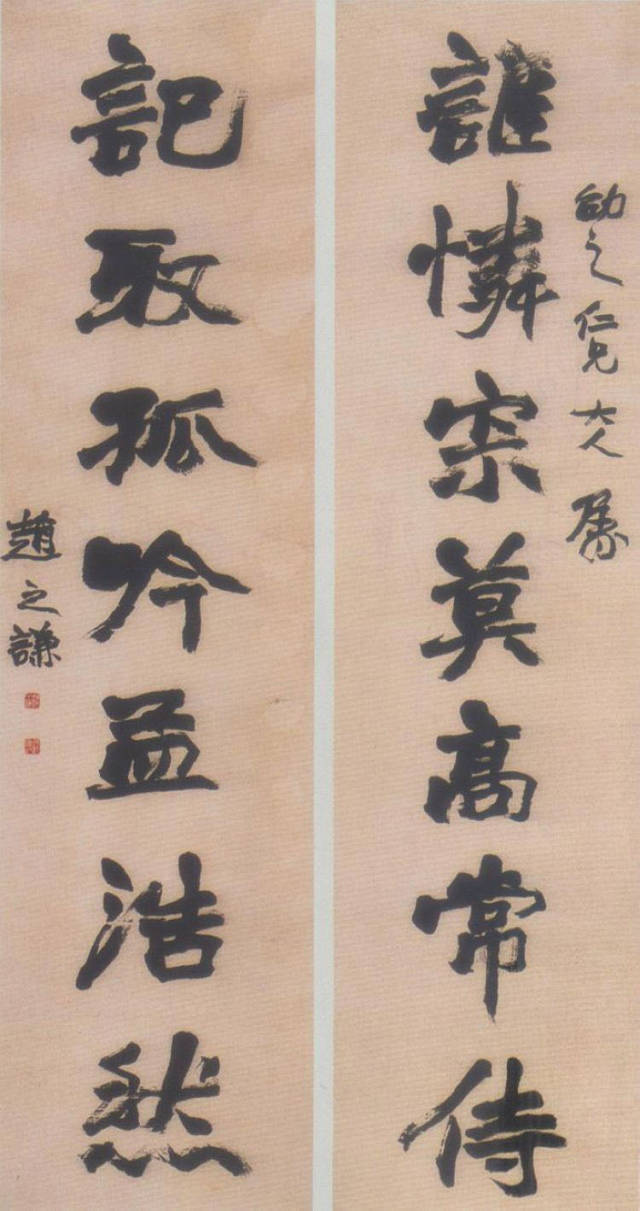 幼之仁兄大人属
誰憐寂莫高常侍
記取孤吟孟浩然
趙之謙